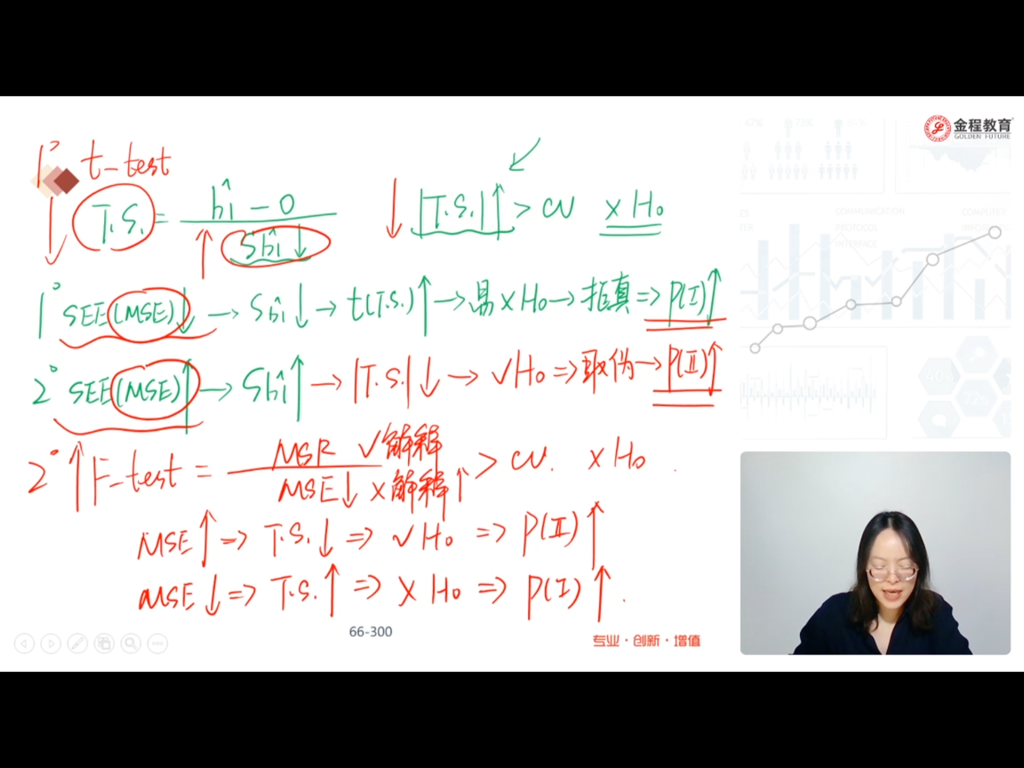 金程教育
GOLDEN FUTURE
1° t-test
↓ T.S. = b̂i - 0 / ↑ Sb̂i ↓
↓ |T.S.|↑ > CV × H0
1° SEE(MSE)↓ → Sb̂i↓ → t(T.S.)↑ → 易×H0 → 拒真 => P(I)↑
2° SEE(MSE)↑ → Sb̂i↑ → |T.S.|↓ → √H0 => 取伪 → P(II)↑
2° ↑ F-test = MSR √解释 / MSE↓ ×解释↑ > CV. × H0.
MSE↑ => T.S.↓ => √H0 => P(II)↑
MSE↓ => T.S.↑ => × H0 => P(I)↑.
66-300
专业·创新·增值